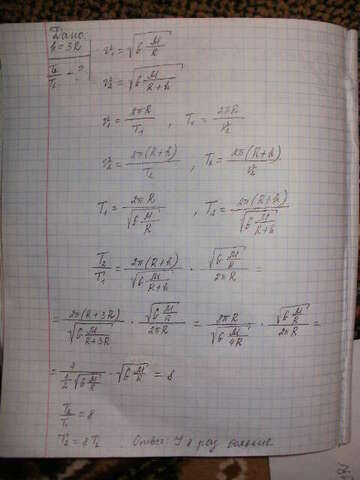 Дано:
h = 3R
T₂/T₁ - ?
v₁ = √(G M/R)
v₂ = √(G M/(R+h))
v₁ = 2πR/T₁ , T₁ = 2πR/v₁
v₂ = 2π(R+h)/T₂ , T₂ = 2π(R+h)/v₂
T₁ = 2πR/√(G M/R) , T₂ = 2π(R+h)/√(G M/(R+h))
T₂/T₁ = 2π(R+h)/√(G M/(R+h)) · √(G M/R)/2πR =
= 2π(R+3R)/√(G M/(R+3R)) · √(G M/R)/2πR = 8πR/√(G M/4R) · √(G M/R)/2πR =
· √(G M/R) = 8
T₂/T₁ = 8
T₂ = 8T₁ Ответ: 8 раз больше.